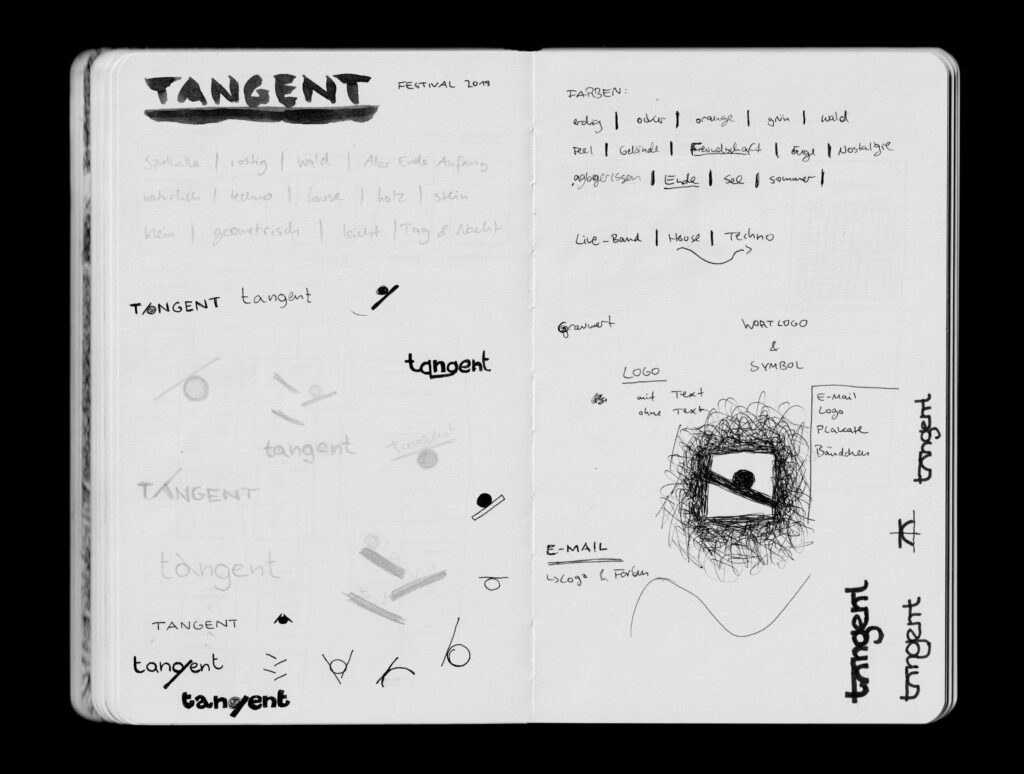 TANGENT FESTIVAL 2019
Spielhalle | rostig | wald | Aller Ende Anfang
natürlich | techno | house | holz | stein
klein | geometrisch | leicht | Tag & Nacht
TANGENT tangent
tangent
tangent tangent
TANGENT
tangent
TANGENT
tangent
tangent
FARBEN:
erdig | ocker | orange | grün | wald
Feel | Gelände | Freundschaft | | Nostalgie
abgerissen | Ende | See | Sommer |
Live-Band | House | Techno
Grauwert
WORTLOGO
&
SYMBOL
LOGO
mit Text
ohne Text
E-Mail
Logo
Plakate
Bändchen
E-MAIL
↳ Logo & Farben
tangent
tangent
tangent